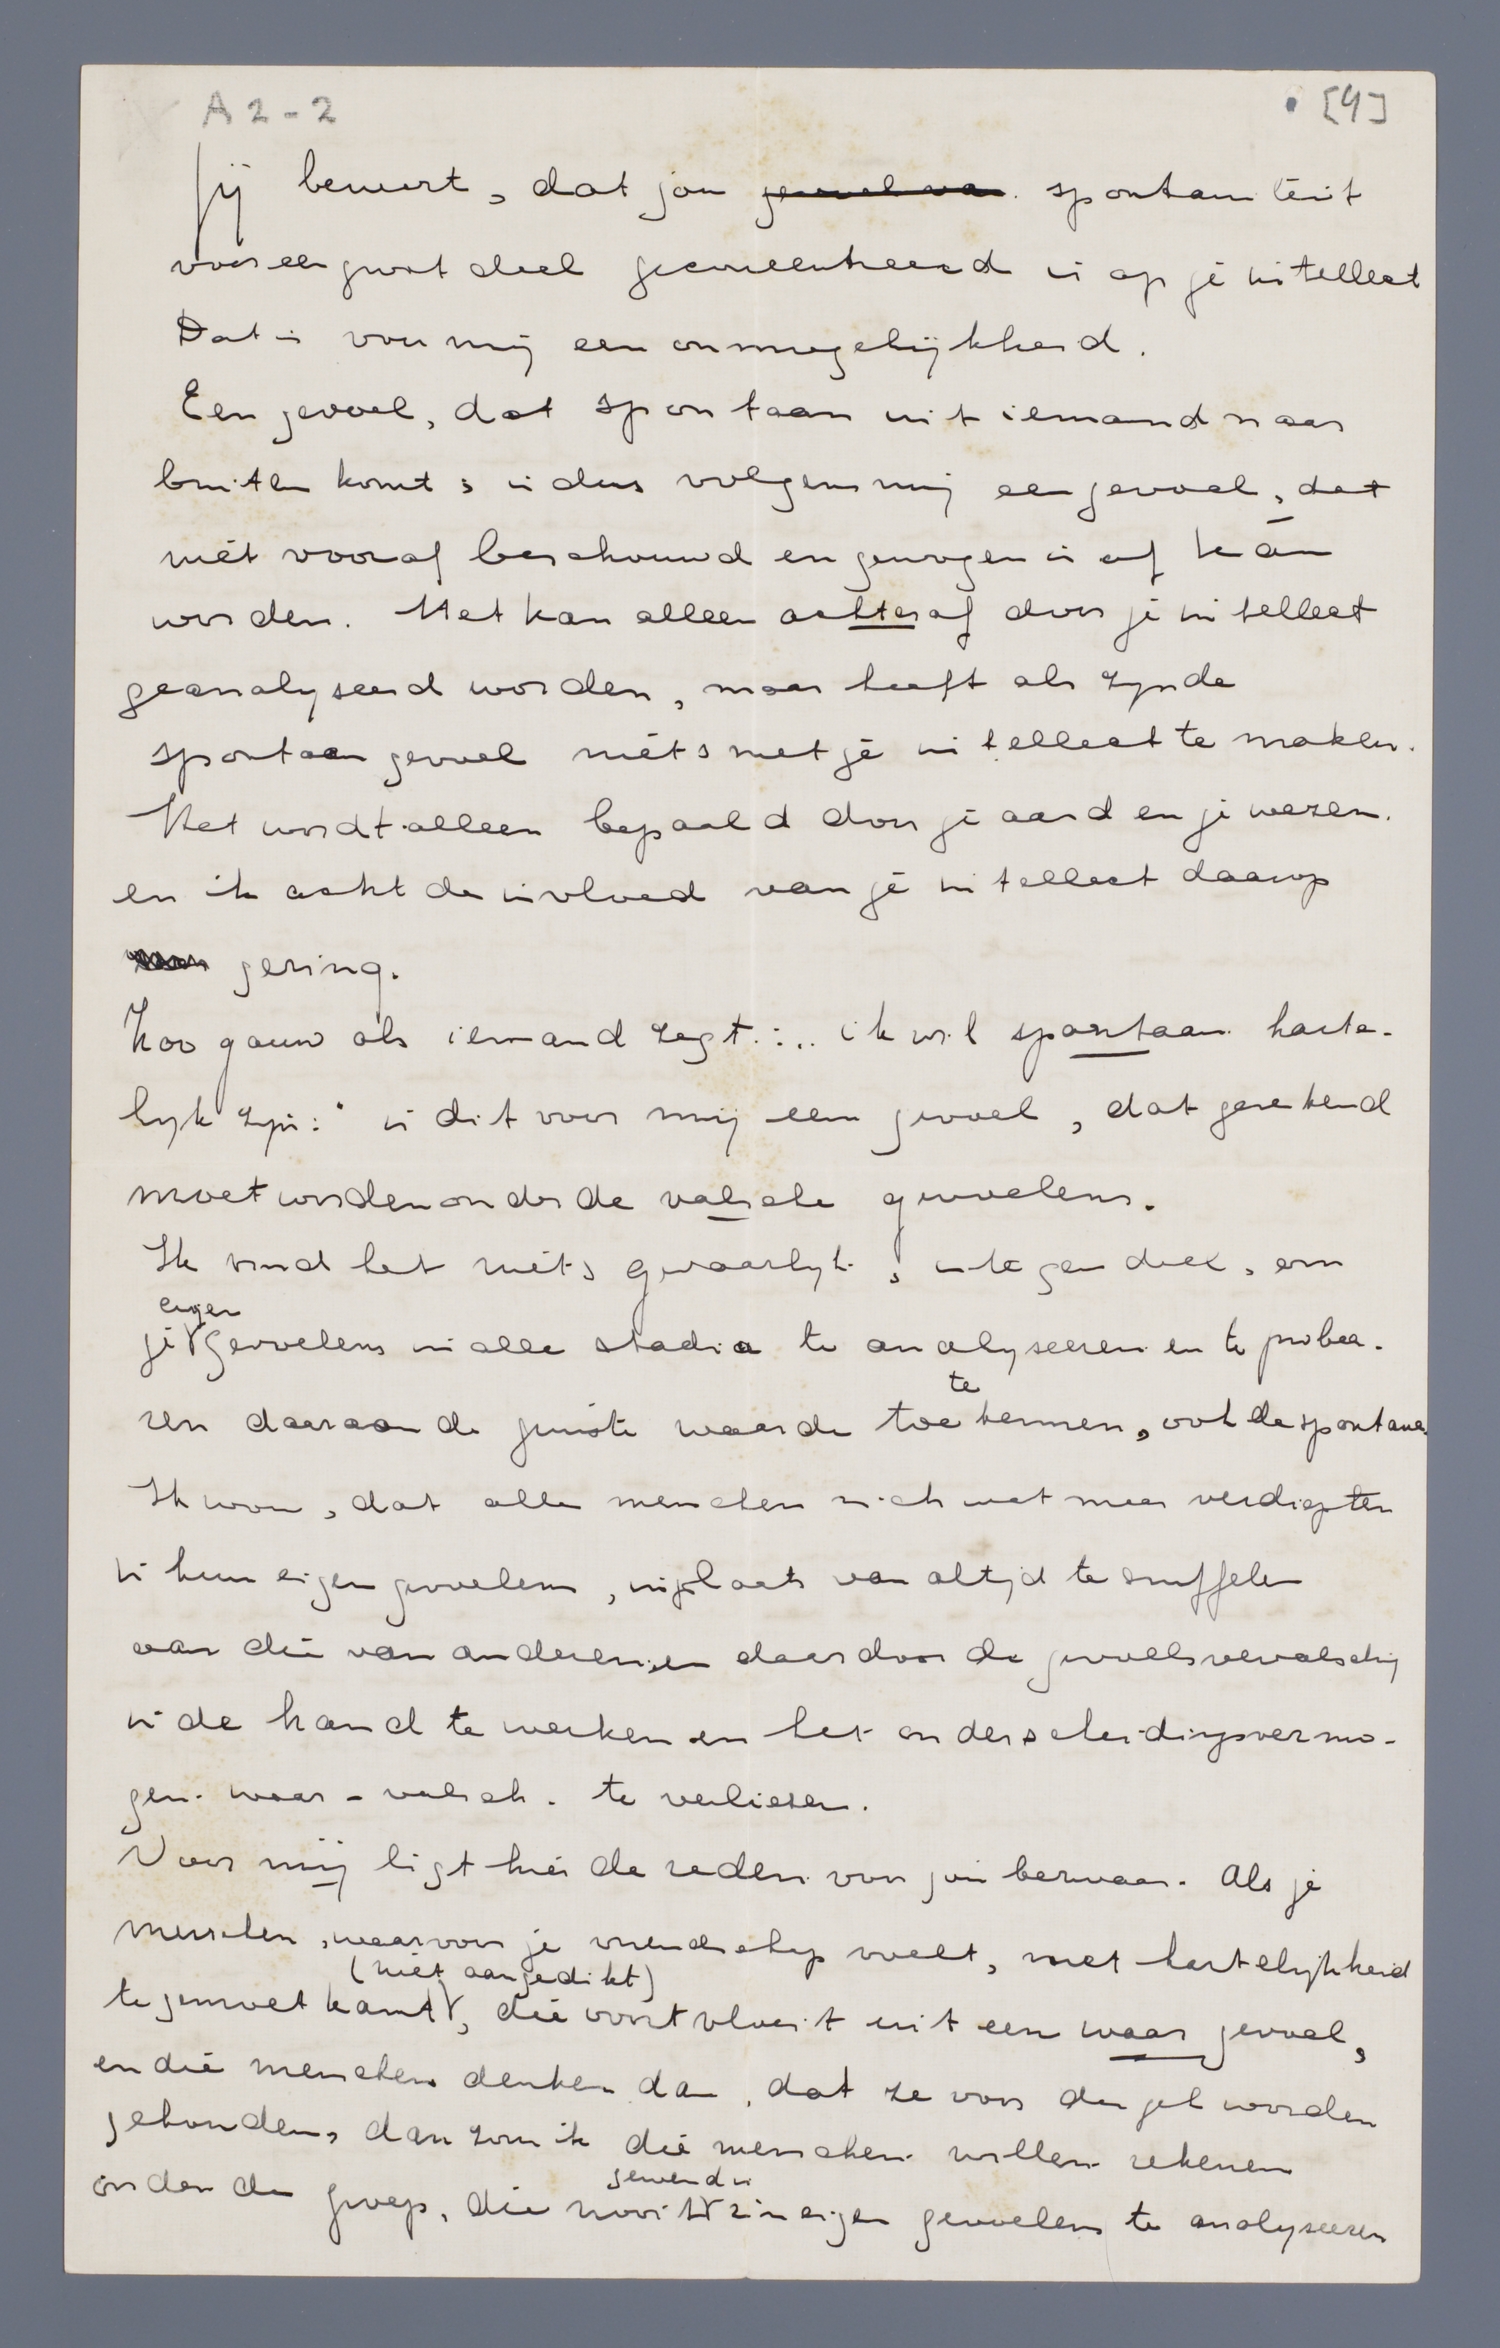 A 2 - 2 [4]
Jij beweert, dat jou gevoel van spontaniteit
voor een groot deel geconcentreerd is op je intellect
Dat is voor mij een onmogelijkheid.
Een gevoel, dat spontaan uit iemand naar
buiten komt, is dus volgens mij een gevoel, dat
niet vooraf beschouwd en gewogen is of kàn
worden. Het kan alleen achteraf door je intellect
geanalyseerd worden, maar heeft als zynde
spontaan gevoel niets met je intellect te maken.
Het wordt alleen bepaald door je aard en je wezen.
en ik acht de invloed van je intellect daarop
gering.
Zoo gauw als iemand zegt: „ik wil spontaan harte-
lyk zyn:" is dit voor mij een gevoel, dat gerekend
moet worden onder de valsche gevoelens.
Ik vind het niets gevaarlyk, integendeel, om
eigen
je gevoelens in alle stadia te analyseeren en te probee-
te
ren daaraan de juiste waarde toe kennen, ook de spontane.
Ik wou, dat alle menschen zich wat meer verdiepten
in hun eigen gevoelens, inplaats van altijd te snuffelen
aan die van anderen, en daardoor de gevoelsvervalsching
in de hand te werken en het onderscheidingsvermo-
gen. waar - valsch. te verliezen.
Voor mij ligt hier de reden van jou bezwaar. Als je
menschen, waarvoor je vriendschap voelt, met hartelijkheid
(niet aangedikt)
tegemoet komt, die voortvloeit uit een waar gevoel,
en die menschen denken dan, dat ze voor de gek worden
gehouden, dan zou ik die menschen willen rekenen
gewend is
onder de groep, die nooit zin eigen gevoelens te analyseeren